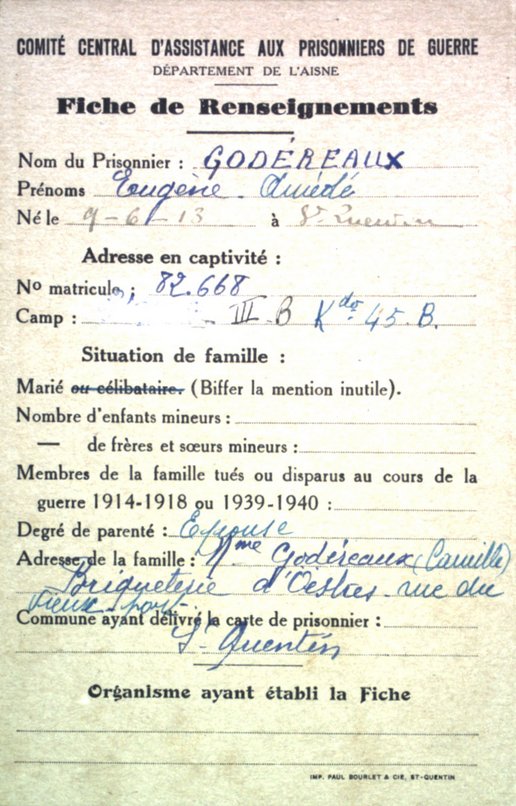 COMITÉ CENTRAL D'ASSISTANCE AUX PRISONNIERS DE GUERRE
DÉPARTEMENT DE L'AISNE
Fiche de Renseignements
Nom du Prisonnier : GODÉREAUX
Prénoms Eugène Amédé
Né le 9-6-13 à St Quentin
Adresse en captivité :
No matricule : 82.668
Camp : III B Kdo 45.B.
Situation de famille :
Marié ou célibataire. (Biffer la mention inutile).
Nombre d'enfants mineurs :
— de frères et sœurs mineurs :
Membres de la famille tués ou disparus au cours de la
guerre 1914-1918 ou 1939-1940 :
Degré de parenté : Epouse
Adresse de la famille : Mme Godéreaux (Camille)
Briqueterie d'Oestres rue du
vieux port
Commune ayant délivré la carte de prisonnier :
St Quentin
Organisme ayant établi la Fiche
IMP. PAUL BOURLET & CIE, ST-QUENTIN